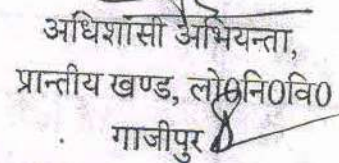 अधिशासी अभियन्ता,
प्रान्तीय खण्ड, लो0नि0वि0
गाजीपुर